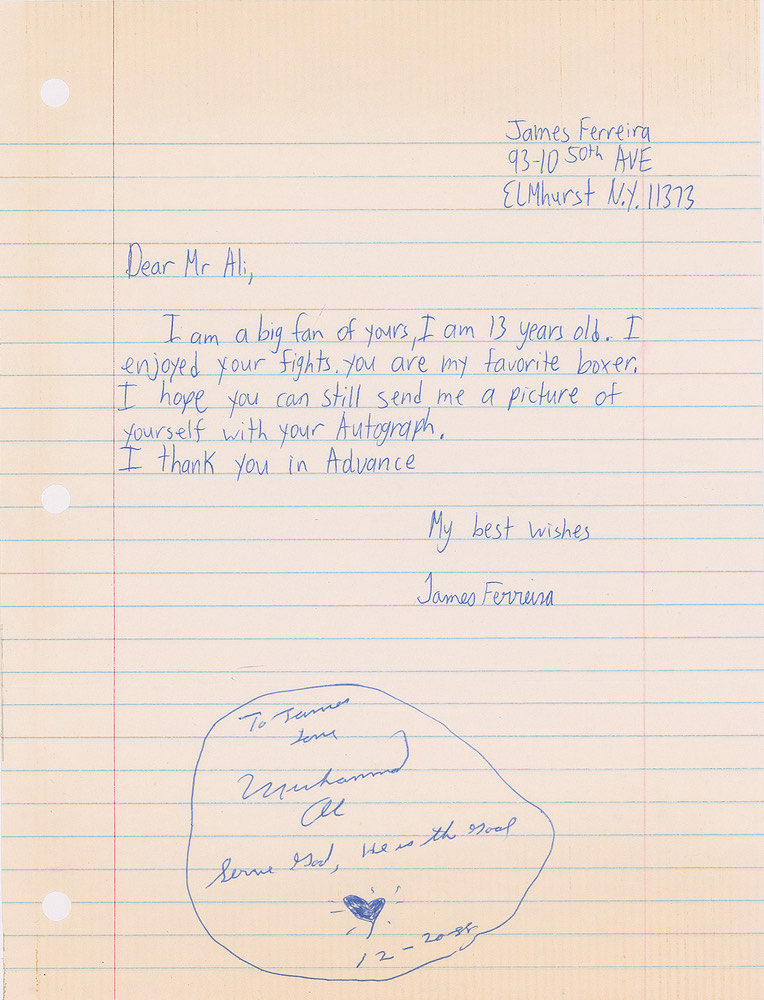 James Ferreira
93-10 50th AVE
ELMhurst N.Y. 11373
Dear Mr Ali,
I am a big fan of yours, I am 13 years old. I
enjoyed your fights. you are my favorite boxer.
I hope you can still send me a picture of
yourself with your Autograph.
I thank you in Advance
My best wishes
James Ferreira
To James
Love
Muhammad
Ali
Serve God, He is the Goal
12-20-88